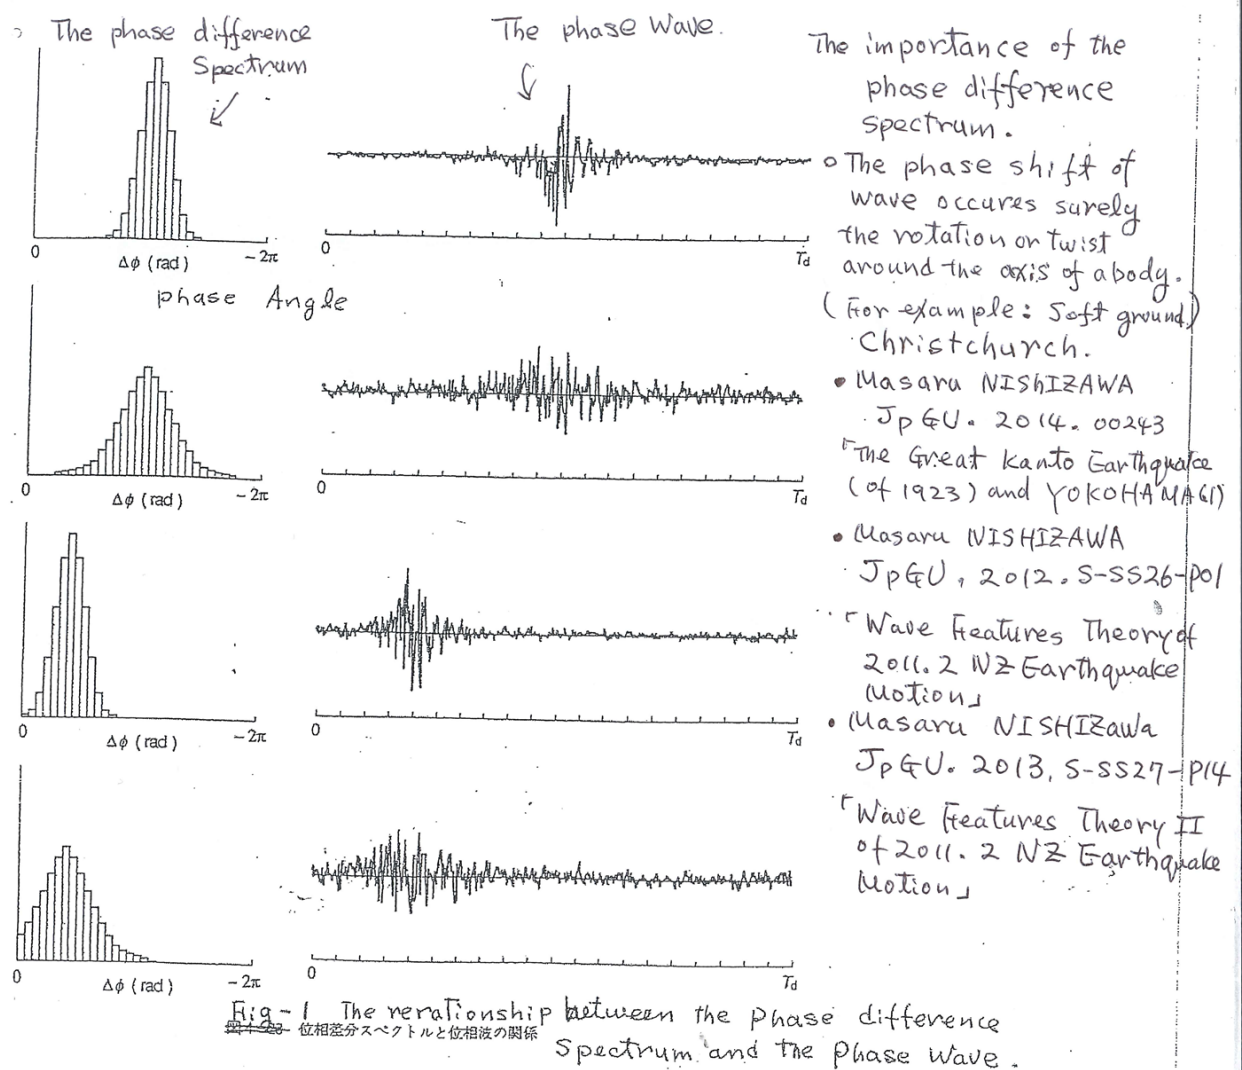 The phase difference
Spectrum
The phase Wave.
0
Δφ (rad)
−2π
0
Td
phase Angle
0
Δφ (rad)
−2π
0
Td
0
Δφ (rad)
−2π
0
Td
0
Δφ (rad)
−2π
0
Td
The importance of the
phase difference
spectrum.
○ The phase shift of
wave occures surely
the rotation or twist
around the axis of a body.
(For example: Soft ground)
Christchurch.
• Masaru NIShIZAWA
JpGU. 2014. 00243
「The Great Kanto Earthquake
(of 1923) and YOKOHAMA(1)
• Masaru NISHIZAWA
JpGU, 2012. S-SS26-P01
「Wave Features Theory of
2011.2 NZ Earthquake
Motion」
• Masaru NISHIZawa
JpGU. 2013, S-SS27-P14
「Wave Features Theory II
of 2011.2 NZ Earthquake
Motion」
Fig-1 The rerationship between the phase difference
位相差分スペクトルと位相波の関係
Spectrum and the Phase Wave.